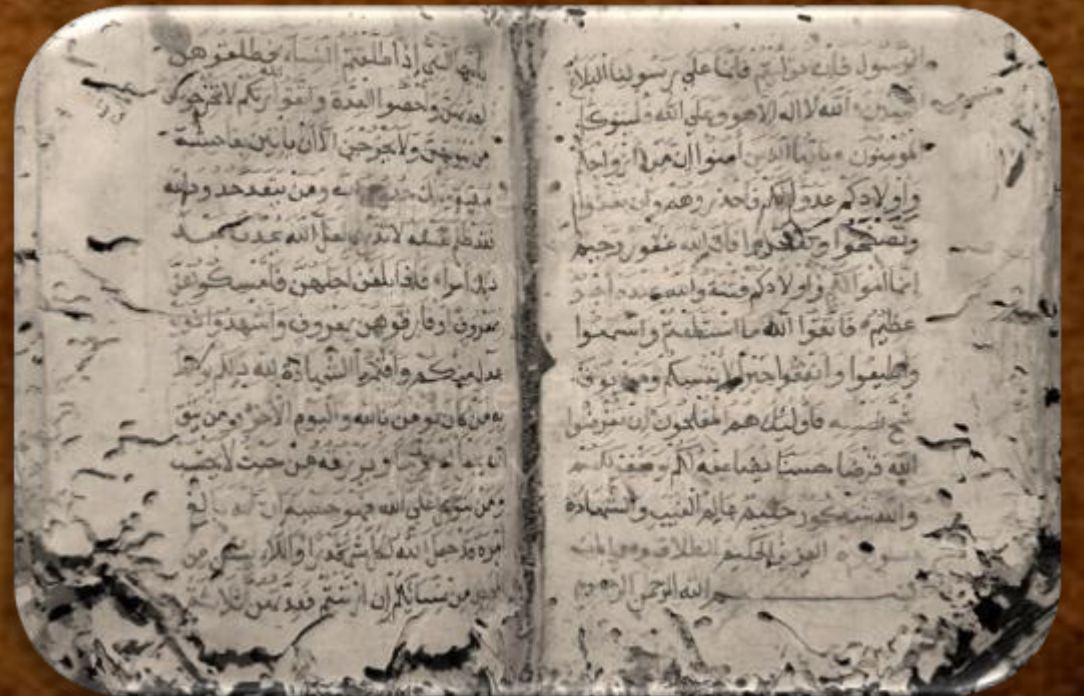 الرسول فان توليتم فانما على رسولنا البلاغ
المبين الله لا اله الا هو وعلى الله فليتوكل
المومنون يايها الذين امنوا ان من ازواجكم
واولادكم عدوا لكم فاحذروهم وان تعفوا
وتصفحوا وتغفروا فان الله غفور رحيم
انما اموالكم واولادكم فتنة والله عنده اجر
عظيم فاتقوا الله ما استطعتم واسمعوا
واطيعوا وانفقوا خيرا لانفسكم ومن يوق
شح نفسه فاوليك هم المفلحون ان تقرضوا
الله قرضا حسنا يضاعفه لكم ويغفر لكم
والله شكور حليم عالم الغيب والشهادة
العزيز الحكيم الطلاق
الله الرحمن الرحيم
يايها النبي اذا طلقتم النساء فطلقوهن
لعدتهن واحصوا العدة واتقوا ربكم لا تخرجوهن
من بيوتهن ولا يخرجن الا ان ياتين بفاحشة
مبينة وتلك حدود الله ومن يتعد حدود الله
فقد ظلم نفسه لا تدري لعل الله يحدث بعد
ذلك امرا فاذا بلغن اجلهن فامسكوهن
بمعروف او فارقوهن بمعروف واشهدوا ذوي
عدل منكم واقيموا الشهادة لله ذلكم يوعظ
به من كان يومن بالله واليوم الاخر ومن يتق
الله يجعل له مخرجا ويرزقه من حيث لا يحتسب
ومن يتوكل على الله فهو حسبه ان الله بالغ
امره قد جعل الله لكل شي قدرا واللاي يئسن من
المحيض من نسايكم ان ارتبتم فعدتهن ثلاثة